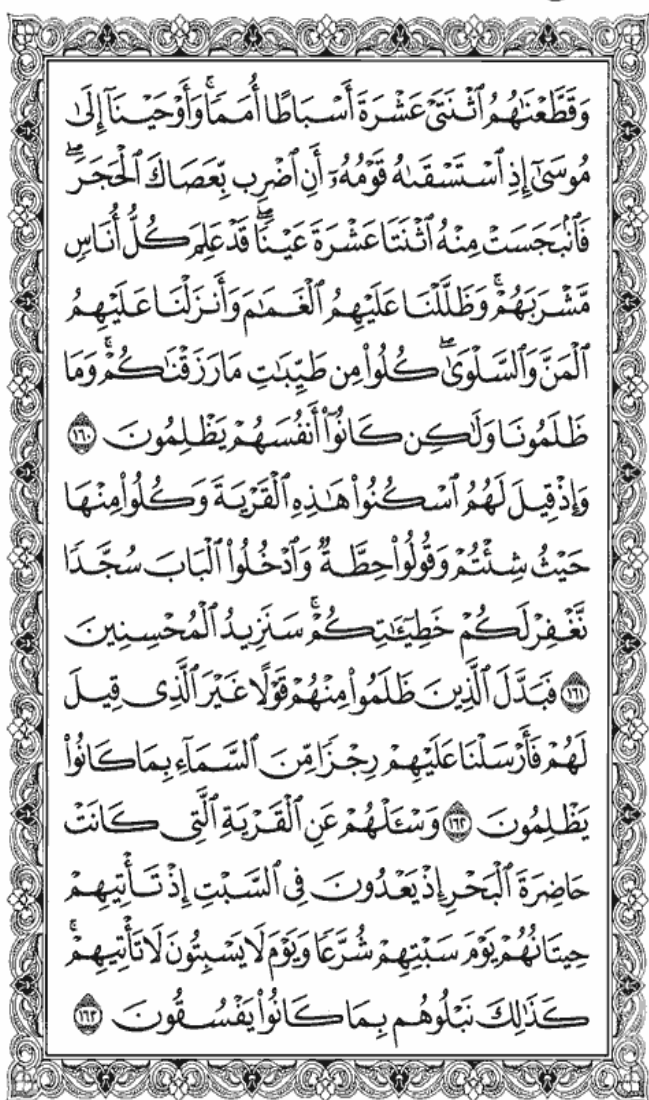 وَقَطَّعْنَٰهُمُ ٱثْنَتَىْ عَشْرَةَ أَسْبَاطًا أُمَمًا ۚ وَأَوْحَيْنَآ إِلَىٰ
مُوسَىٰٓ إِذِ ٱسْتَسْقَىٰهُ قَوْمُهُۥٓ أَنِ ٱضْرِب بِّعَصَاكَ ٱلْحَجَرَ ۖ
فَٱنۢبَجَسَتْ مِنْهُ ٱثْنَتَا عَشْرَةَ عَيْنًا ۖ قَدْ عَلِمَ كُلُّ أُنَاسٍ
مَّشْرَبَهُمْ ۚ وَظَلَّلْنَا عَلَيْهِمُ ٱلْغَمَٰمَ وَأَنزَلْنَا عَلَيْهِمُ
ٱلْمَنَّ وَٱلسَّلْوَىٰ ۖ كُلُوا۟ مِن طَيِّبَٰتِ مَا رَزَقْنَٰكُمْ ۚ وَمَا
ظَلَمُونَا وَلَٰكِن كَانُوٓا۟ أَنفُسَهُمْ يَظْلِمُونَ ١٦٠
وَإِذْ قِيلَ لَهُمُ ٱسْكُنُوا۟ هَٰذِهِ ٱلْقَرْيَةَ وَكُلُوا۟ مِنْهَا
حَيْثُ شِئْتُمْ وَقُولُوا۟ حِطَّةٌ وَٱدْخُلُوا۟ ٱلْبَابَ سُجَّدًا
نَّغْفِرْ لَكُمْ خَطِيٓـَٰٔتِكُمْ ۚ سَنَزِيدُ ٱلْمُحْسِنِينَ
١٦١ فَبَدَّلَ ٱلَّذِينَ ظَلَمُوا۟ مِنْهُمْ قَوْلًا غَيْرَ ٱلَّذِى قِيلَ
لَهُمْ فَأَرْسَلْنَا عَلَيْهِمْ رِجْزًا مِّنَ ٱلسَّمَآءِ بِمَا كَانُوا۟
يَظْلِمُونَ ١٦٢ وَسْـَٔلْهُمْ عَنِ ٱلْقَرْيَةِ ٱلَّتِى كَانَتْ
حَاضِرَةَ ٱلْبَحْرِ إِذْ يَعْدُونَ فِى ٱلسَّبْتِ إِذْ تَأْتِيهِمْ
حِيتَانُهُمْ يَوْمَ سَبْتِهِمْ شُرَّعًا وَيَوْمَ لَا يَسْبِتُونَ لَا تَأْتِيهِمْ ۚ
كَذَٰلِكَ نَبْلُوهُم بِمَا كَانُوا۟ يَفْسُقُونَ ١٦٣